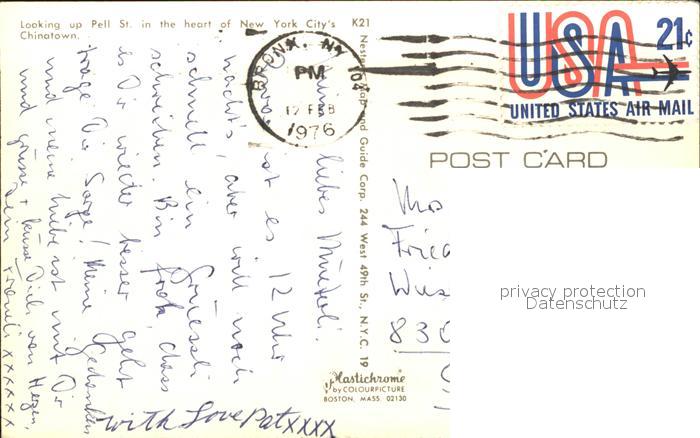 Looking up Pell St. in the heart of New York City's
Chinatown.
K21
Nester's Map and Guide Corp. 244 West 49th St., N.Y.C. 19
BRONX, NY 104
PM
12 FEB
1976
USA 21c
UNITED STATES AIR MAIL
POST CARD
liebes Müeterli.
ist es 12 Uhr
nachts, aber will noch
schnell ein Grüessli
schreiben. Bin froh, dass
es Dir wieder besser geht
trage Dir Sorge! Meine Gedanken
und meine Liebe ist mit Dir
und grüsse + küsse Dich von Herzen,
Dein xxxxxx
With Love Pat xxxx
Mrs
Fried
Wies
830
privacy protection
Datenschutz
Plastichrome
by COLOURPICTURE
BOSTON, MASS. 02130